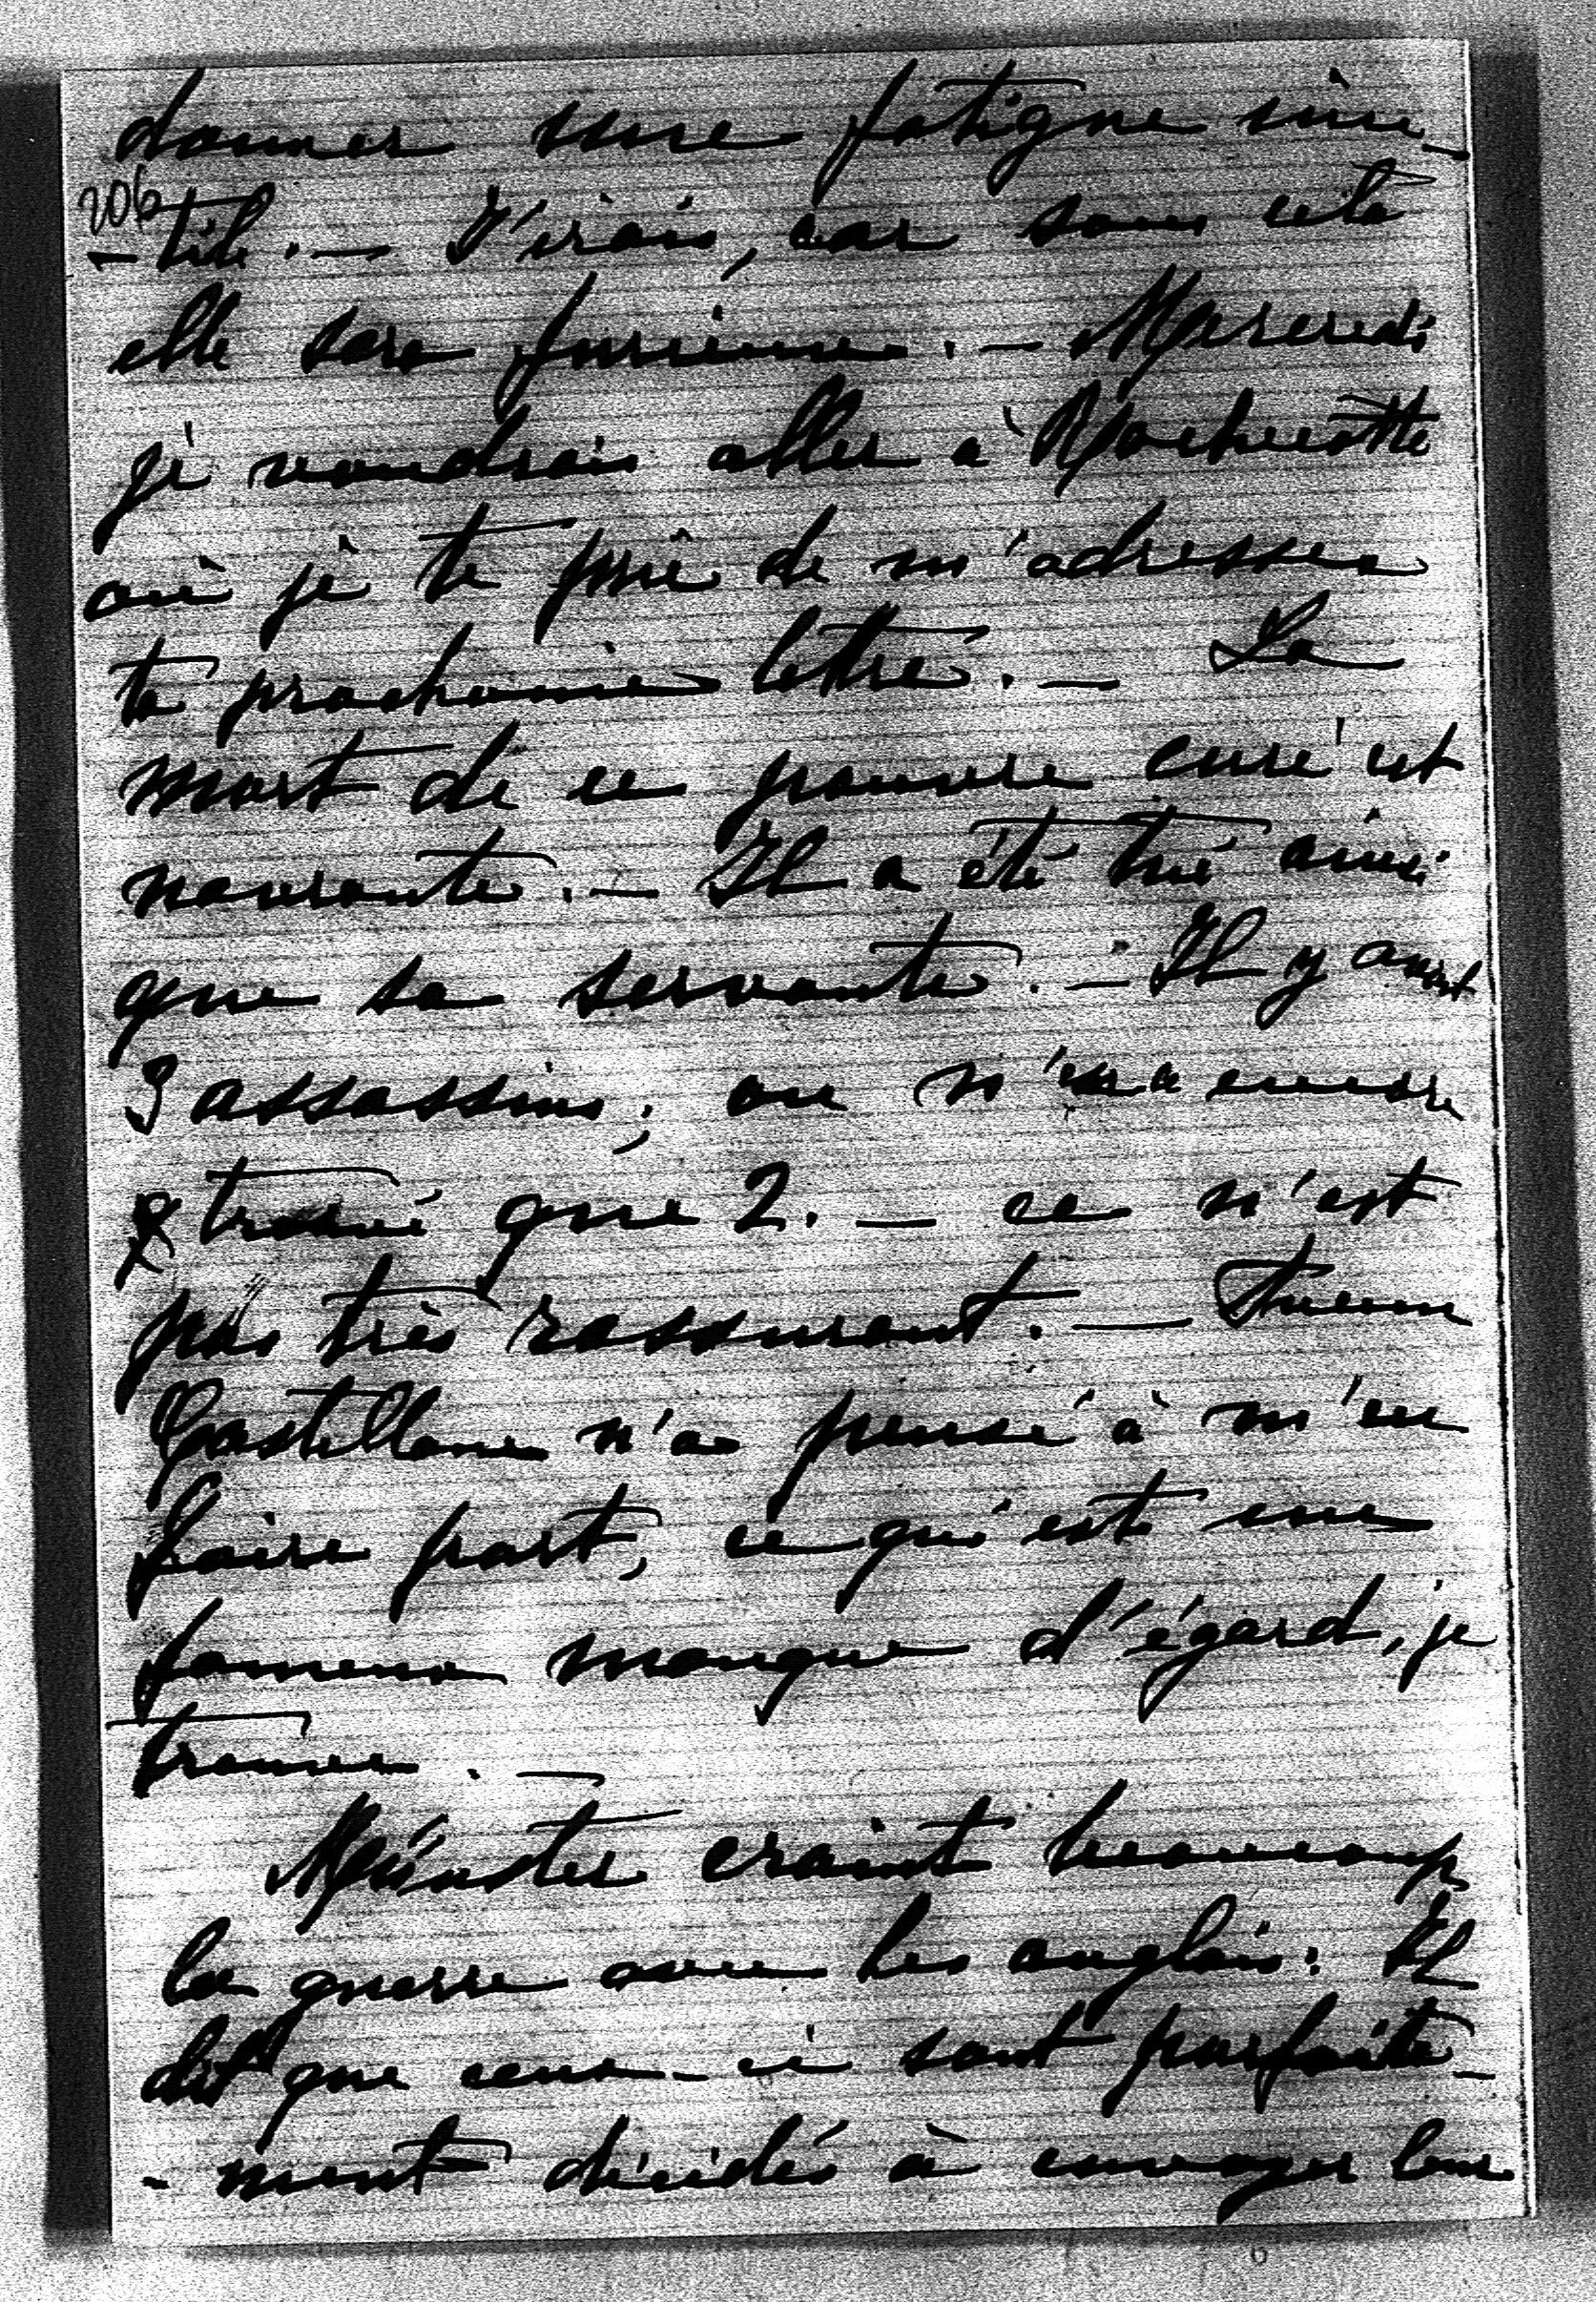 donner une fatigue inu-
206
-tile. — J'irais, car sans cela
elle sera furieuse. — Mercredi
je voudrais aller à Rochecotte
où je te prie de m'adresser
ta prochaine lettre. — La
mort de ce pauvre curé est
navrante. — Il a été tué ainsi
que sa servante. — Il y avait
3 assassins; on n'en a encore
trouvé que 2. — ce n'est
pas très rassurant. — Aucun
Castellane n'a pensé à m'en
faire part, ce qui est un
fameux manque d'égard, je
trouve. —
Münster craint beaucoup
la guerre avec les anglais. Il
dit que ceux-ci sont parfaite-
-ment décidés à envoyer leur